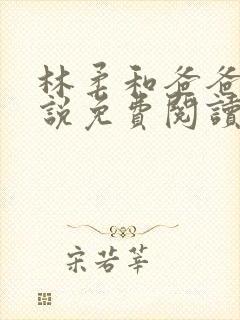 林柔和爸爸
說免費閱讀
宋若莘